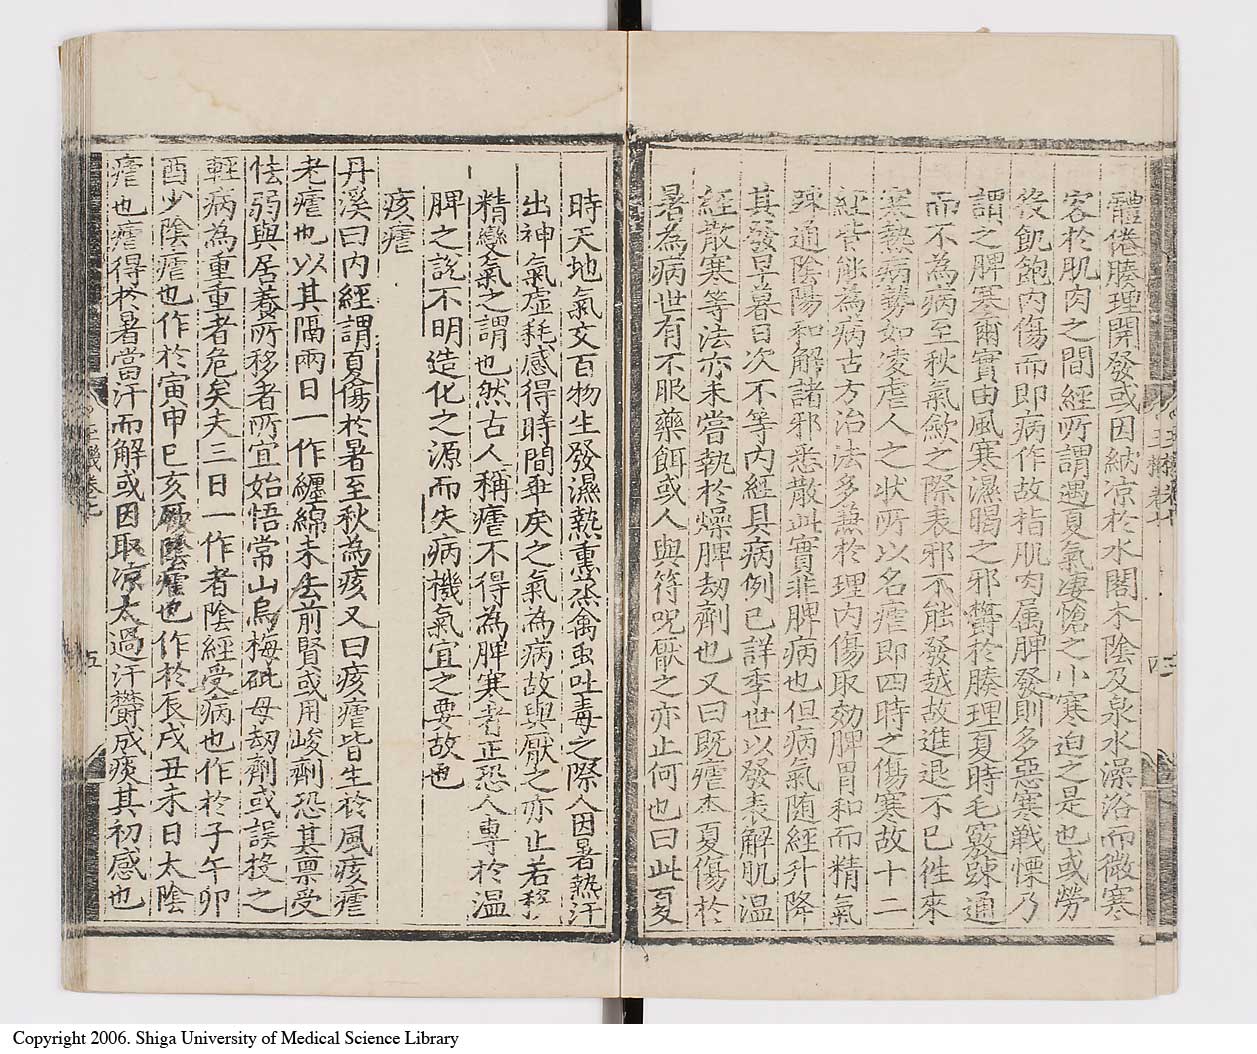 體倦腠理開發或因納凉於水閣木陰及泉水澡浴而微寒
客於肌肉之間經所謂遇夏氣凄愴之小寒迫之是也或勞
役飢飽內傷而即病作故指肌肉属脾發則多惡寒戰慄乃
謂之脾寒爾實由風寒濕暍之邪欝於腠理夏時毛竅踈通
而不為病至秋氣歛之際表邪不能發越故進退不已徃來
寒熱病勢如凌虐人之状所以名瘧即四時之傷寒故十二
經皆能為病古方治法多兼於理內傷取効脾胃和而精氣
踈通陰陽和解諸邪悉散此實非脾病也但病氣随經升降
其發早暮日次不等内經具病例已詳李世以發表解肌温
經散寒等法亦未嘗執於燥脾劫劑也又曰既瘧本夏傷於
暑為病世有不服藥餌或人與符呪厭之亦止何也曰此夏
時天地氣交百物生發濕熱熏烝禽䖝吐毒之際人因暑熱汗
出神氣虚耗感得時間乖戾之氣為病故與厭之亦止若移
精變氣之謂也然古人稱瘧不得為脾寒者正恐人專於温
脾之說不明造化之源而失病機氣宜之要故也
痎瘧
丹溪曰内經謂夏傷於暑至秋為痎又曰痎瘧皆生於風痎瘧
老瘧也以其隔兩日一作纏綿未去前賢或用峻劑恐其禀受
怯弱與居養所移者所宜始悟常山烏梅砒母劫劑或誤投之
輕病為重重者危矣夫三日一作者陰經受病也作於子午卯
酉少陰瘧也作於寅申巳亥厥陰瘧也作於辰戌丑未日太陰
瘧也瘧得於暑當汗而解或因取凉太過汗欝成痰其初感也
五